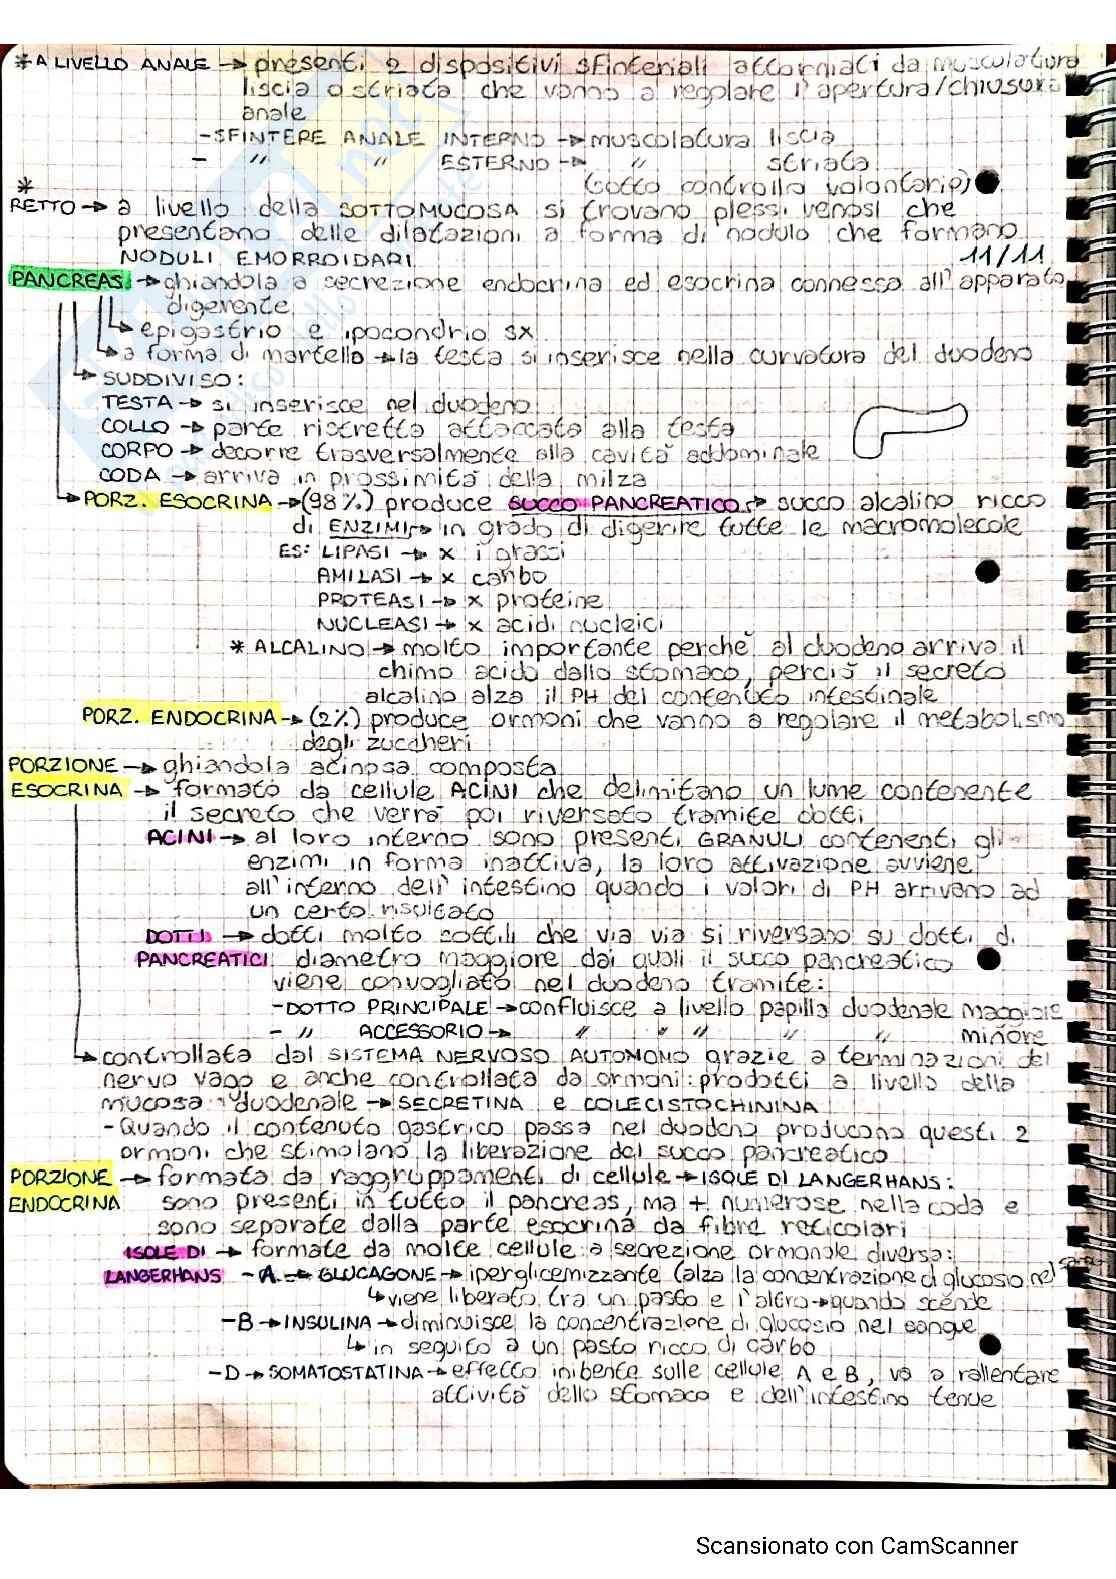 * A LIVELLO ANALE → presenti 2 dispositivi sfinteriali attorniati da muscolatura
liscia o striata che vanno a regolare l'apertura/chiusura
anale
- SFINTERE ANALE INTERNO → muscolatura liscia
- " " ESTERNO → " striata
(sotto controllo volontario)
*
RETTO → a livello della SOTTOMUCOSA si trovano plessi venosi che
presentano delle dilatazioni a forma di nodulo che formano
NODULI EMORROIDARI
11/11
PANCREAS → ghiandola a secrezione endocrina ed esocrina connessa all'apparato
digerente
↳ epigastrio e ipocondrio sx
↳ a forma di martello → la testa si inserisce nella curvatura del duodeno
→ SUDDIVISO:
TESTA → si inserisce nel duodeno
COLLO → parte ristretta attaccata alla testa
CORPO → decorre trasversalmente alla cavità addominale
CODA → arriva in prossimità della milza
↳ PORZ. ESOCRINA → (98%) produce SUCCO PANCREATICO → succo alcalino ricco
di ENZIMI → in grado di digerire tutte le macromolecole
ES: LIPASI → x i grassi
AMILASI → x carbo
PROTEASI → x proteine
NUCLEASI → x acidi nucleici
* ALCALINO → molto importante perchè al duodeno arriva il
chimo acido dallo stomaco, perciò il secreto
alcalino alza il PH del contenuto intestinale
PORZ. ENDOCRINA → (2%) produce ormoni che vanno a regolare il metabolismo
degli zuccheri
PORZIONE → ghiandola acinosa composta
ESOCRINA → formato da cellule ACINI che delimitano un lume contenente
il secreto che verrà poi riversato tramite dotti
ACINI → al loro interno sono presenti GRANULI contenenti gli
enzimi in forma inattiva, la loro attivazione avviene
all'interno dell'intestino quando i valori di PH arrivano ad
un certo risultato
DOTTI → dotti molto sottili che via via si riversano su dotti di
PANCREATICI diametro maggiore dai quali il succo pancreatico
viene convogliato nel duodeno tramite:
- DOTTO PRINCIPALE → confluisce a livello papilla duodenale maggiore
- " ACCESSORIO → " " " " " minore
↳ controllata dal SISTEMA NERVOSO AUTONOMO grazie a terminazioni del
nervo vago e anche controllata da ormoni prodotti a livello della
mucosa duodenale → SECRETINA e COLECISTOCHININA
- Quando il contenuto gastrico passa nel duodeno producono questi 2
ormoni che stimolano la liberazione del succo pancreatico
PORZIONE → formata da raggruppamenti di cellule → ISOLE DI LANGERHANS:
ENDOCRINA sono presenti in tutto il pancreas, ma + numerose nella coda e
sono separate dalla parte esocrina da fibre reticolari
ISOLE DI → formate da molte cellule a secrezione ormonale diversa:
LANGERHANS - A → GLUCAGONE → iperglicemizzante (alza la concentrazione di glucosio nel
↳ viene liberato tra un pasto e l'altro → quando scende
- B → INSULINA → diminuisce la concentrazione di glucosio nel sangue
↳ in seguito a un pasto ricco di carbo
- D → SOMATOSTATINA → effetto inibente sulle cellule A e B, va a rallentare
attività dello stomaco e dell'intestino tenue
Scansionato con CamScanner